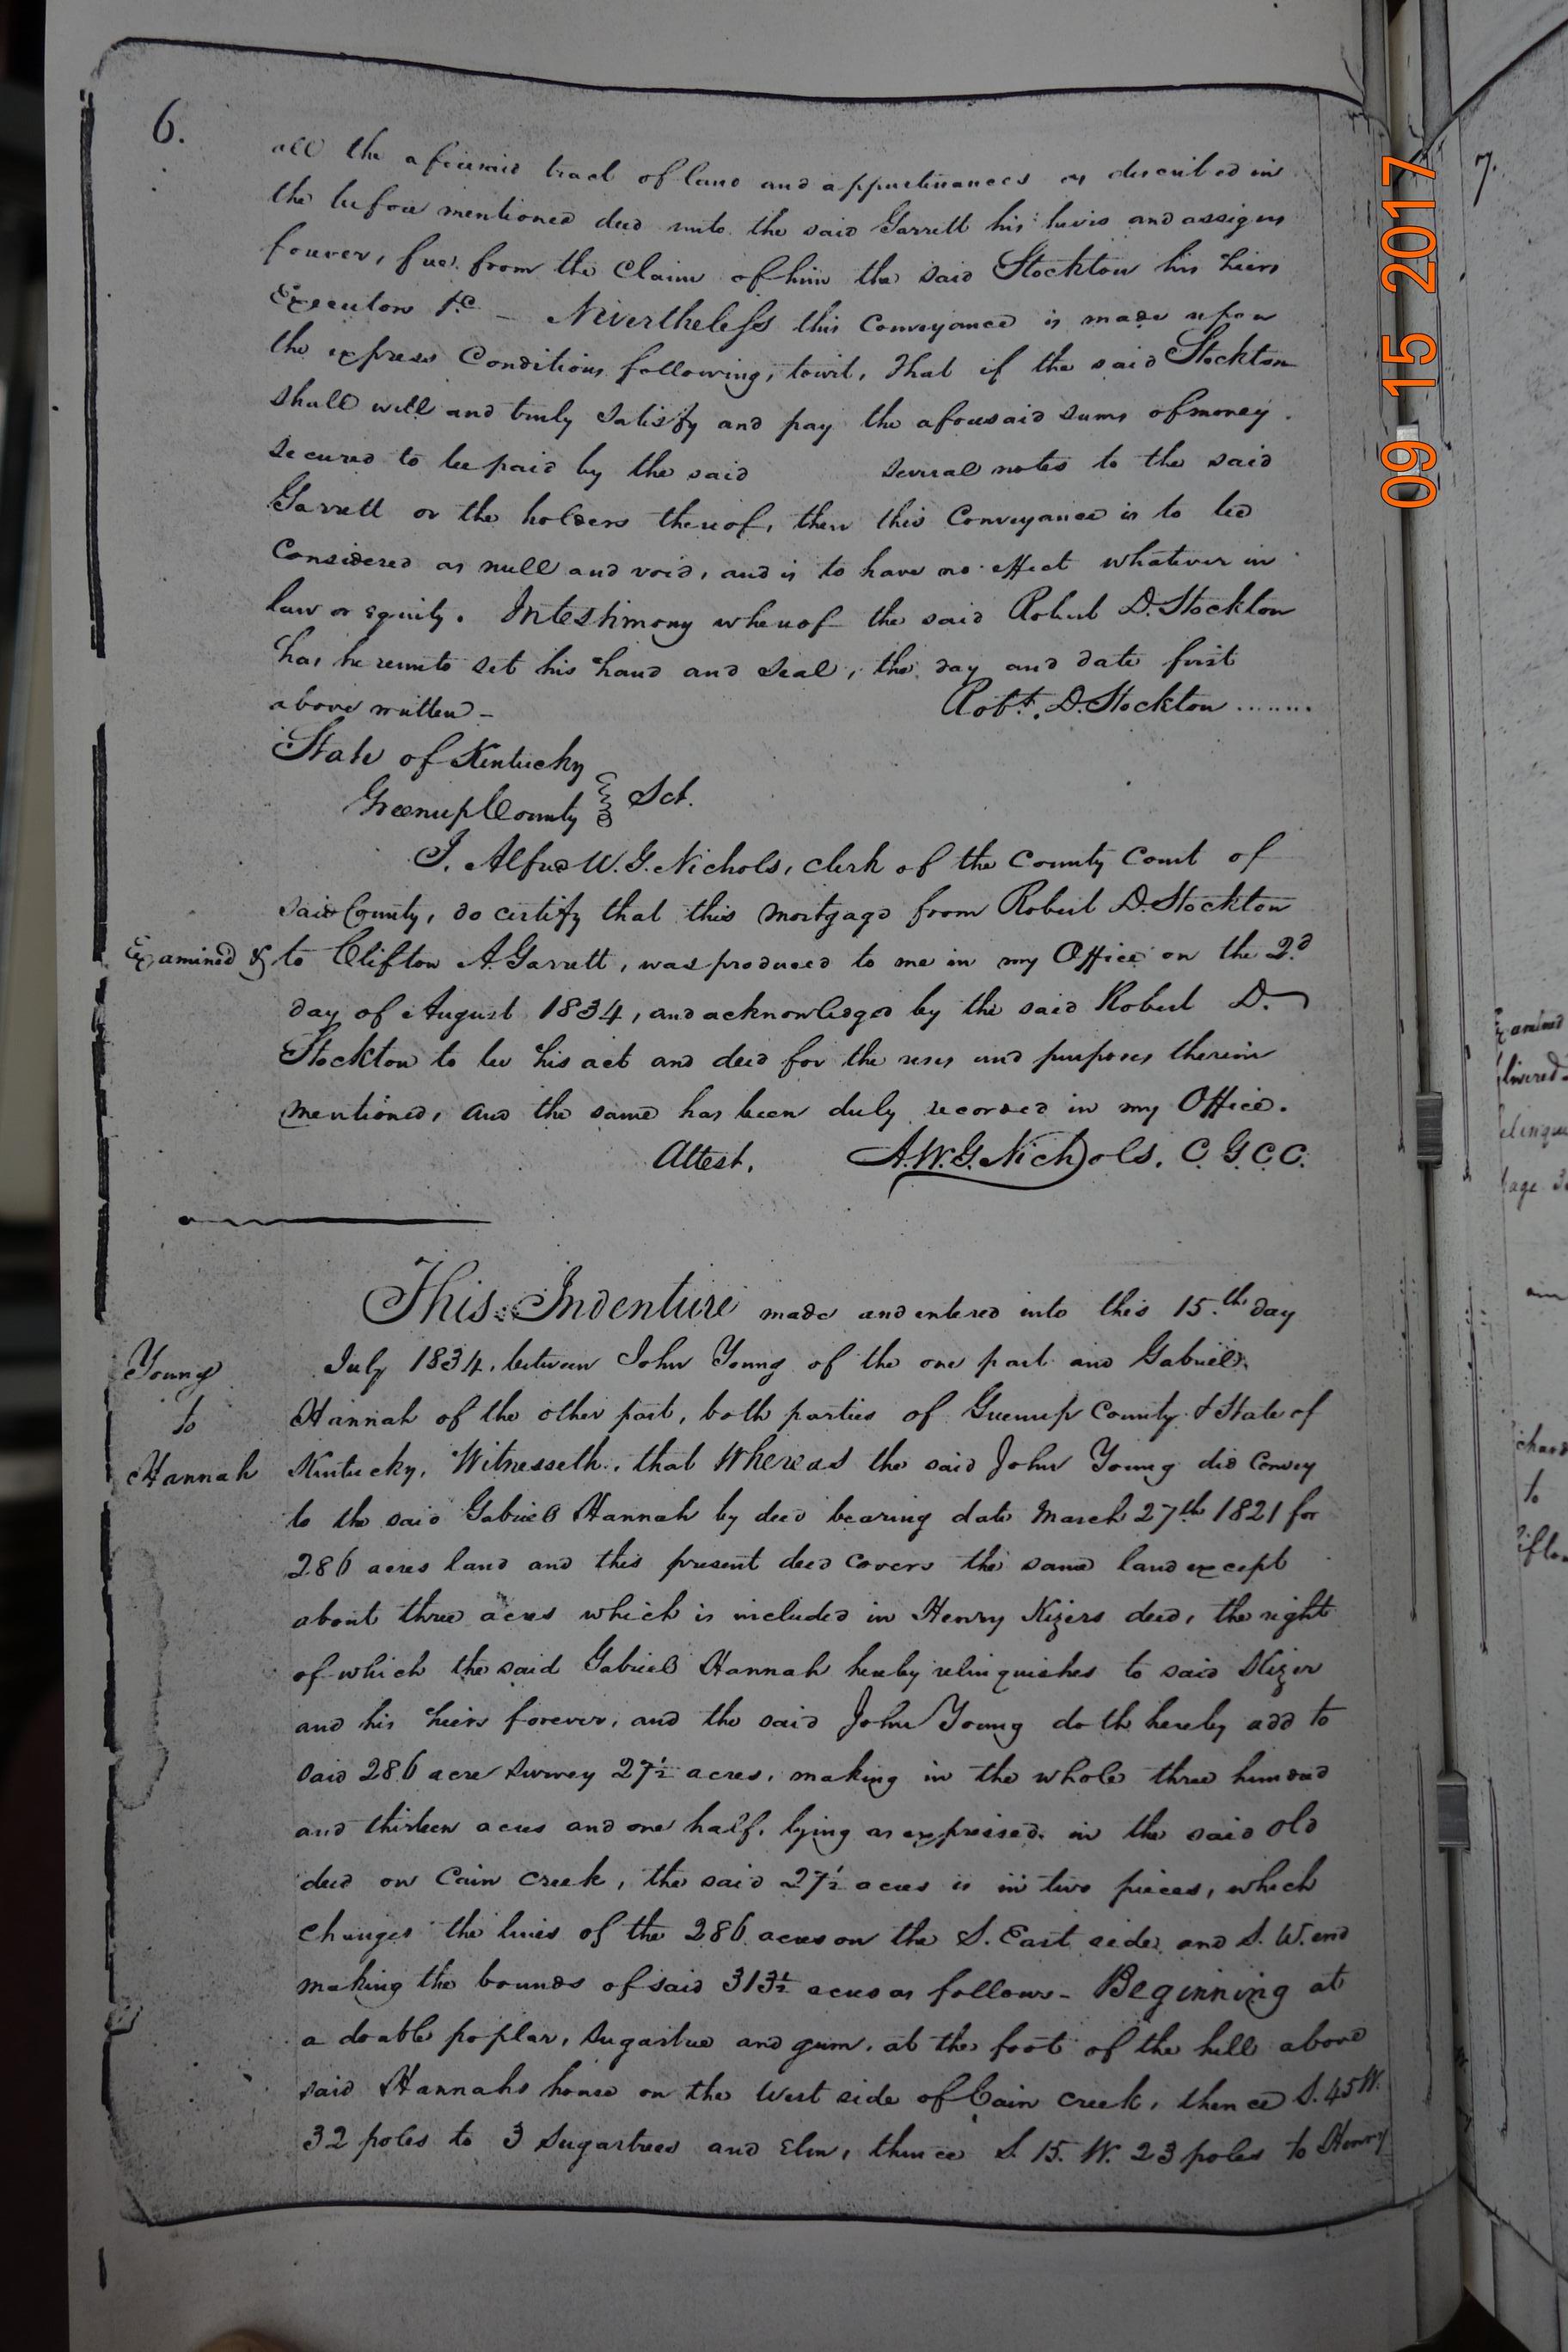 6.
all the aforesaid tract of land and appurtinances as described in
the before mentioned deed unto the said Garrett his heirs and assigns
forever, free from the Claim of him the said Stockton his heirs
Executors &c – Nevertheless this Conveyance is made upon
the express Conditions following, towit, That if the said Stockton
shall well and truly Satisfy and pay the aforesaid sums of money
secured to be paid by the said several notes to the said
Garrett or the holders thereof, then this Conveyance is to be
Considered as null and void, and is to have no effect whatever in
law or equity. In testimony whereof the said Robert D. Stockton
has hereunto set his hand and seal, the day and date first
above written – Robt. D. Stockton ........
State of Kentucky
Greenup County } Sct.
I. Alfred W. G. Nichols, clerk of the County Court of
said County, do certify that this mortgage from Robert D. Stockton
Examined & to Clifton A. Garrett, was produced to me in my Office on the 2d
day of August 1834, and acknowledged by the said Robert D.
Stockton to be his act and deed for the uses and purposes therein
mentioned, and the same has been duly recorded in my Office.
Attest, A. W. G. Nichols, C. G. C. C.
This Indenture made and entered into this 15th day
Young
to
Hannah
July 1834, between John Young of the one part and Gabriel
Hannah of the other part, both parties of Greenup County & State of
Kentucky, Witnesseth, that Whereas the said John Young did Convey
to the said Gabriel Hannah by deed bearing date March 27th 1821 for
286 acres land and this present deed covers the same land except
about three acres which is included in Henry Kizers deed, the right
of which the said Gabriel Hannah hereby relinquishes to said Kizer
and his heirs forever, and the said John Young doth hereby add to
said 286 acre survey 27½ acres, making in the whole three hundred
and thirteen acres and one half, lying as expressed in the said old
deed on Cain Creek, the said 27½ acres is in two pieces, which
changes the lines of the 286 acres on the S. East side and S. W. end
making the bounds of said 313½ acres as follows – Beginning at
a double poplar, Sugartree and gum, at the foot of the hill above
said Hannahs house on the West side of Cain Creek, thence S. 45 W.
32 poles to 3 Sugartrees and Elm, thence S. 15. W. 23 poles to Henry
09 15 2017
7.